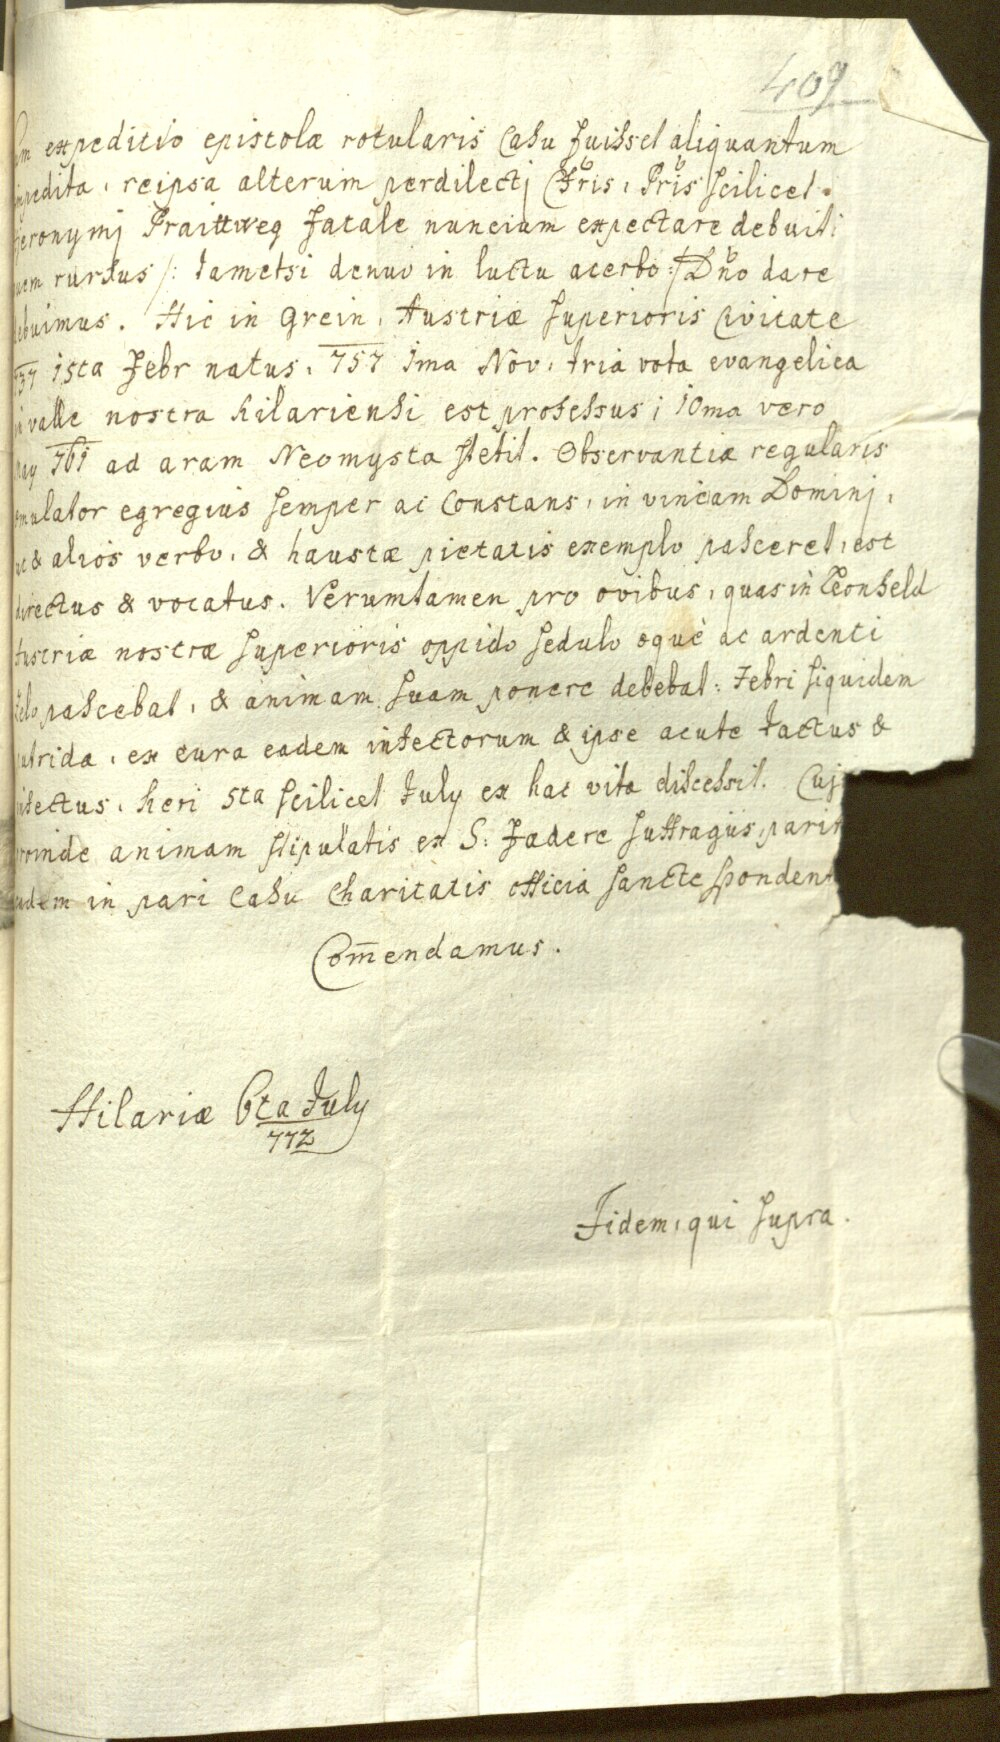 409
expeditio epistolæ rotularis Casu fuisset aliquantum
impedita, reipsa alterum perdilecti Cfris, Pris scilicet
Hieronymj Praittweg fatale nuncium expectare debuit:
quem rursus /: tametsi denuo in luctu acerbo :/ Dño dare
debuimus. Hic in Grein, Austriæ Superioris Civitate
737 15ta Febr natus, 757 1ma Nov. tria vota evangelica
in valle nostra hilariensi est professus; 10ma vero
May 761 ad aram Neomysta stetit. Observantiæ regularis
æmulator egregius semper ac Constans, in vineam Dominj,
ut & alios verbo, & haustæ pietatis exemplo pasceret, est
directus & vocatus. Verumtamen pro ovibus, quas in Leonfeld
Austriæ nostræ Superioris oppido sedulo æque ac ardenti
zelo pascebat, & animam suam ponere debebat: Febri siquidem
putrida, ex cura eadem infectorum & ipse acute tactus &
infectus, heri 5ta scilicet July ex hac vita discessit. Cuj
proinde animam stipulatis ex S: Fædere suffragiis, parit
eadem in pari Casu Charitatis officia sancte sponden
Com̄endamus.
Hilariæ 6ta July
772
Iidem, qui supra.